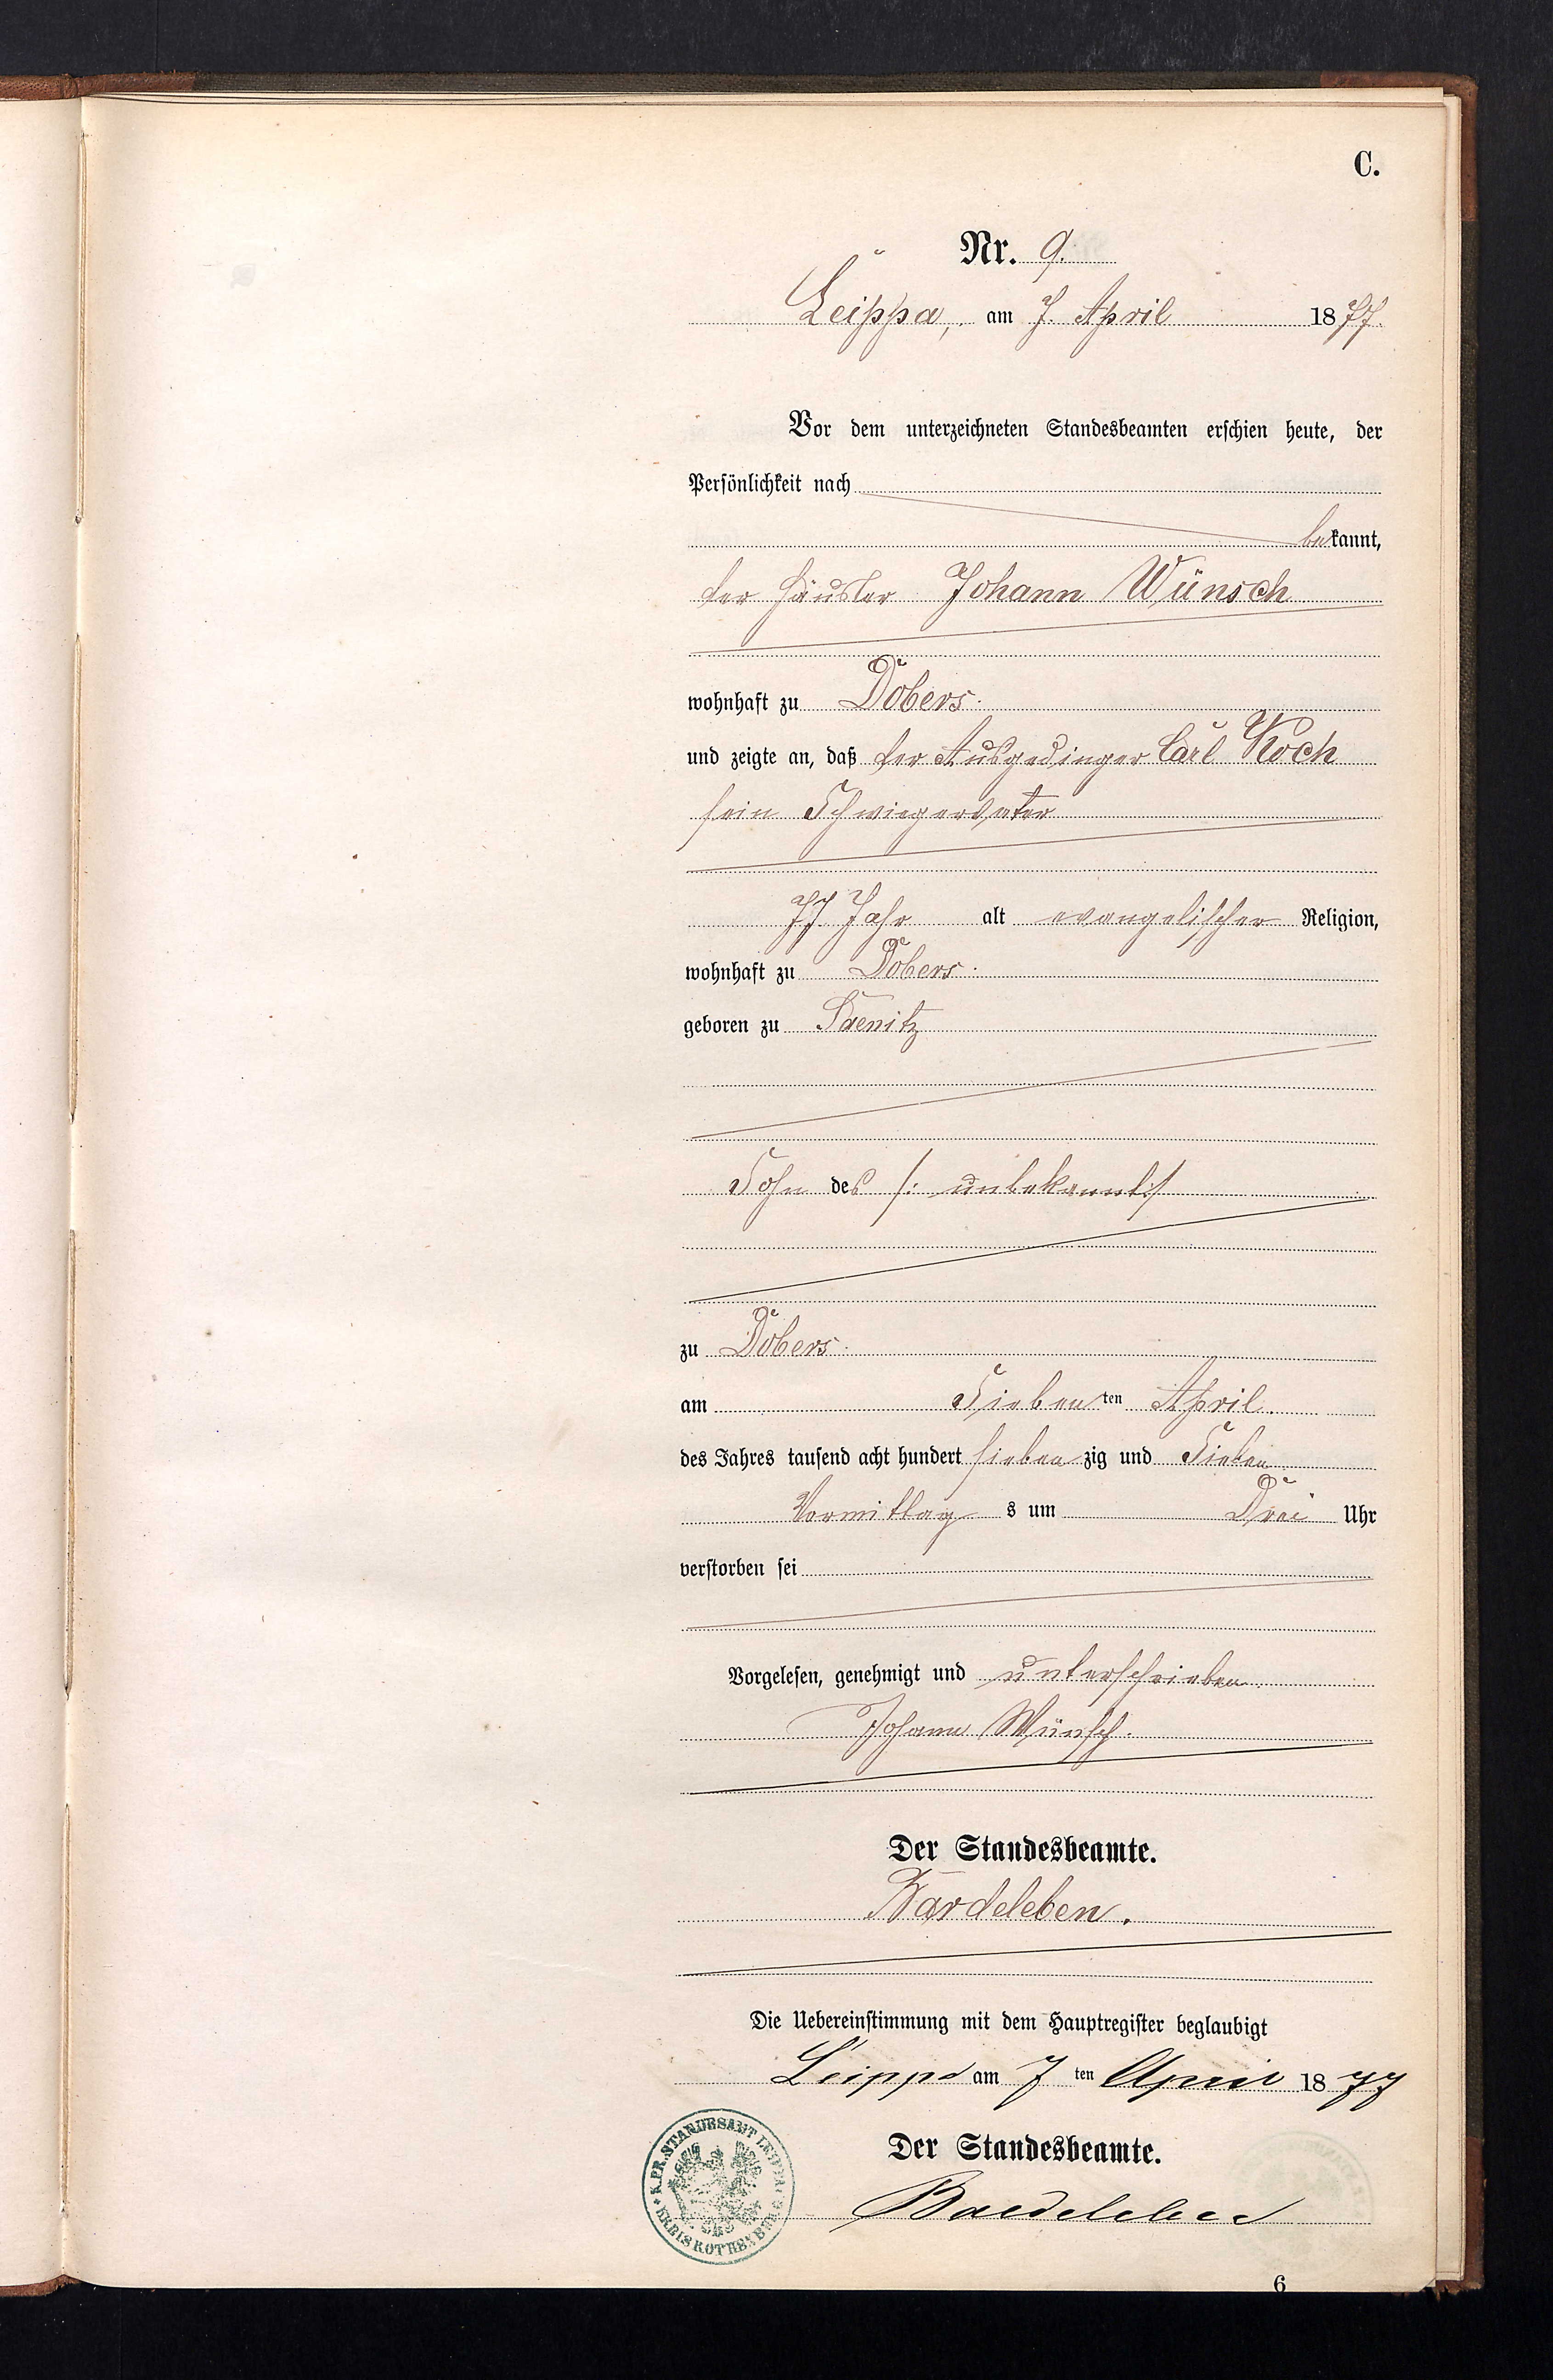 C.
Nr. 9.
Leippa, am 7. April 1877.
Vor dem unterzeichneten Standesbeamten erschien heute, der
Persönlichkeit nach
bekannt,
der Häusler Johann Wünsch
wohnhaft zu Dobers.
und zeigte an, daß der Ausgedinger Carl Koch
sein Schwiegervater
77 Jahr alt evangelischer Religion,
wohnhaft zu Dobers.
geboren zu Saenitz
Sohn des /: unbekannt :/
zu Dobers.
am Siebenten April
des Jahres tausend acht hundert siebenzig und Sieben
Vormittags um Drei Uhr
verstorben sei
Vorgelesen, genehmigt und unterschrieben
Johann Wünsch.
Der Standesbeamte.
Bardeleben.
Die Uebereinstimmung mit dem Hauptregister beglaubigt
Leippa am 7ten April 1877
Der Standesbeamte.
K. PR. STANDESAMT LEIPPA
KREIS ROTHENBURG
Bardeleben
6